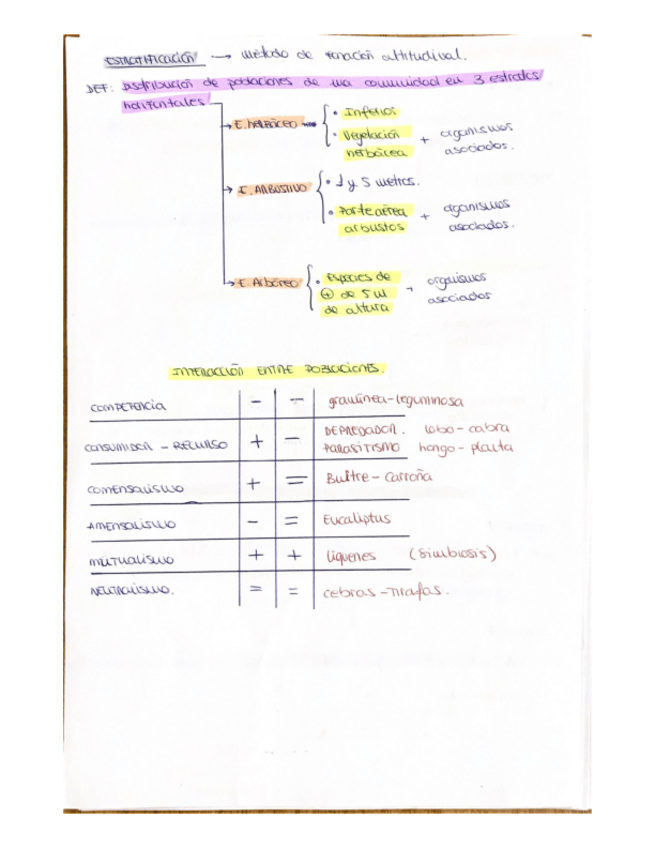 ESTRATIFICACIÓN → método de zonación altitudinal.
DEF: Distribución de poblaciones de una comunidad en 3 estratos
horizontales
→ E. HERBÁCEO → { • Inferior
• Vegetación herbácea + organismos asociados.
→ E. ARBUSTIVO { • 1 y 5 metros.
• Parte aérea arbustos + organismos asociados.
→ E. Arbóreo { • Especies de ⊕ de 5 m de altura + organismos asociados
INTERACCIÓN ENTRE POBLACIONES.
COMPETENCIA - - gramínea - leguminosa
CONSUMIDOR - RECURSO + - DEPREDADOR. lobo - cabra
PARASITISMO hongo - planta
COMENSALISMO + = Buitre - Carroña
AMENSALISMO - = Eucaliptus
MUTUALISMO + + líquenes (Simbiosis)
NEUTRALISMO. = = cebras - jirafas.